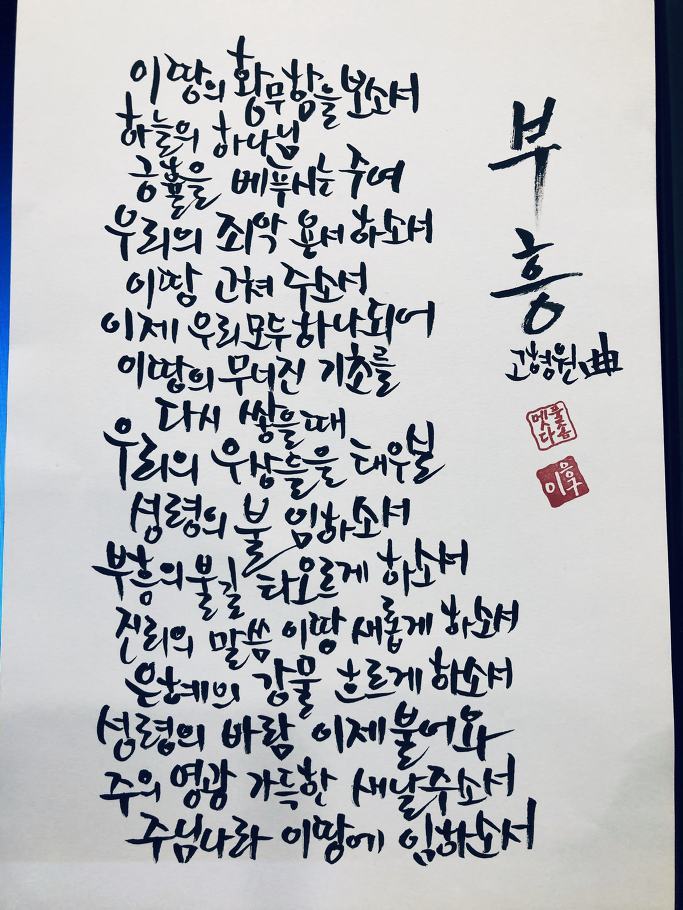 부흥
고형원 曲
멧풀
다솜
이응구
이땅의 황무함을 보소서
하늘의 하나님
긍휼을 베푸시는 주여
우리의 죄악 용서 하소서
이땅 고쳐 주소서
이제 우리 모두 하나되어
이땅의 무너진 기초를
다시 쌓을 때
우리의 우상들을 태우실
성령의 불 임하소서
부흥의 불길 타오르게 하소서
진리의 말씀 이땅 새롭게 하소서
은혜의 강물 흐르게 하소서
성령의 바람 이제 불어와
주의 영광 가득한 새날 주소서
주님나라 이땅에 임하소서